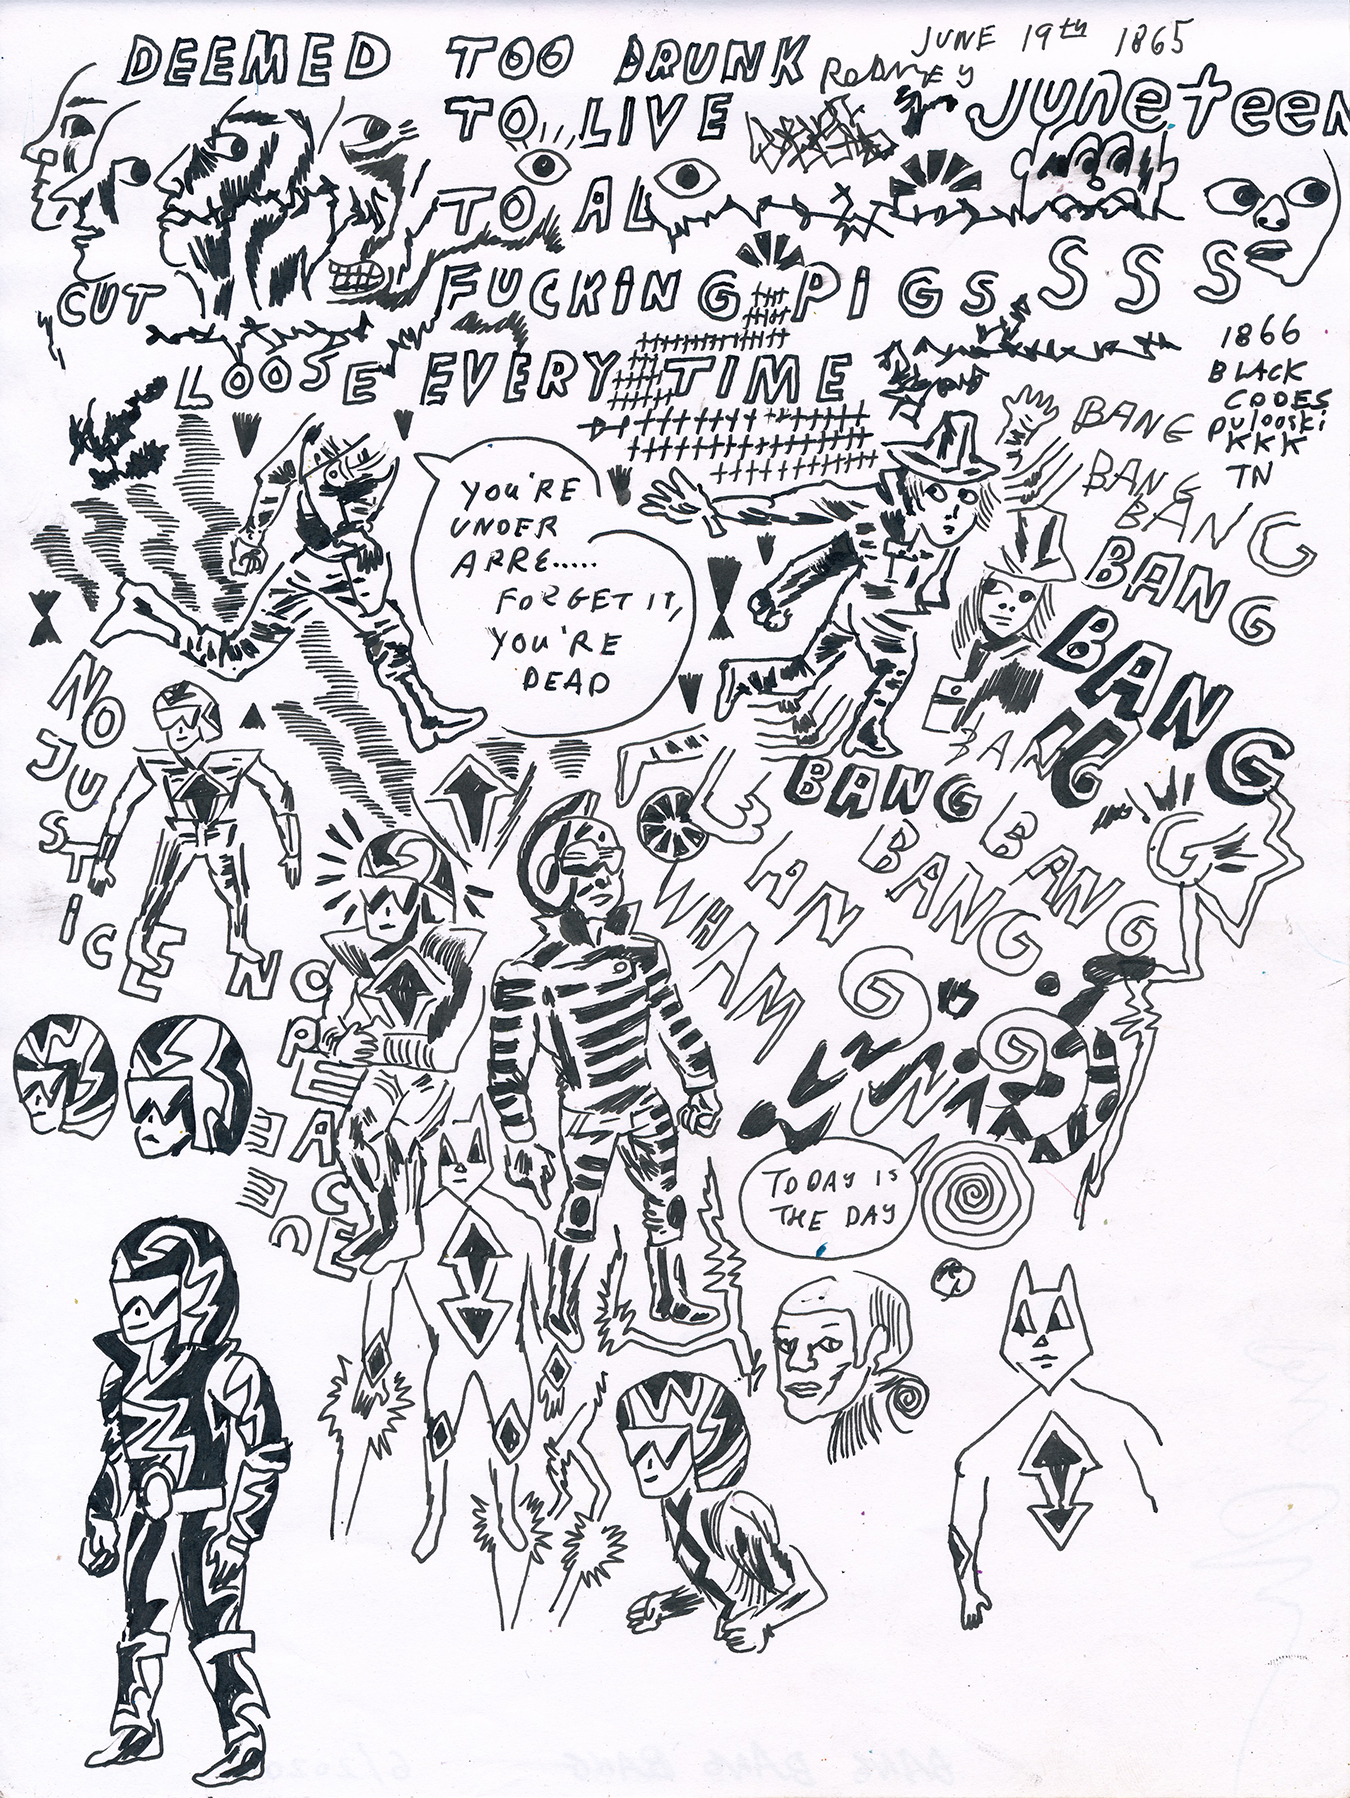 DEEMED TOO DRUNK
TO LIVE
JUNE 19th 1865
RODNEY
JUNETEEN
TO AL
CUT
FUCKING PIGS SSS
LOOSE EVERY TIME
1866
BLACK
CODES
PULOOSKI
KKK
TN
YOU'RE
UNDER
ARRE.....
FORGET IT,
YOU'RE
DEAD
BANG
BANG
BANG
BANG
BANG
BANG
BANG BANG
BANG
ANG
WHAM
NO
JUSTICE NO
PEACE
TODAY IS
THE DAY